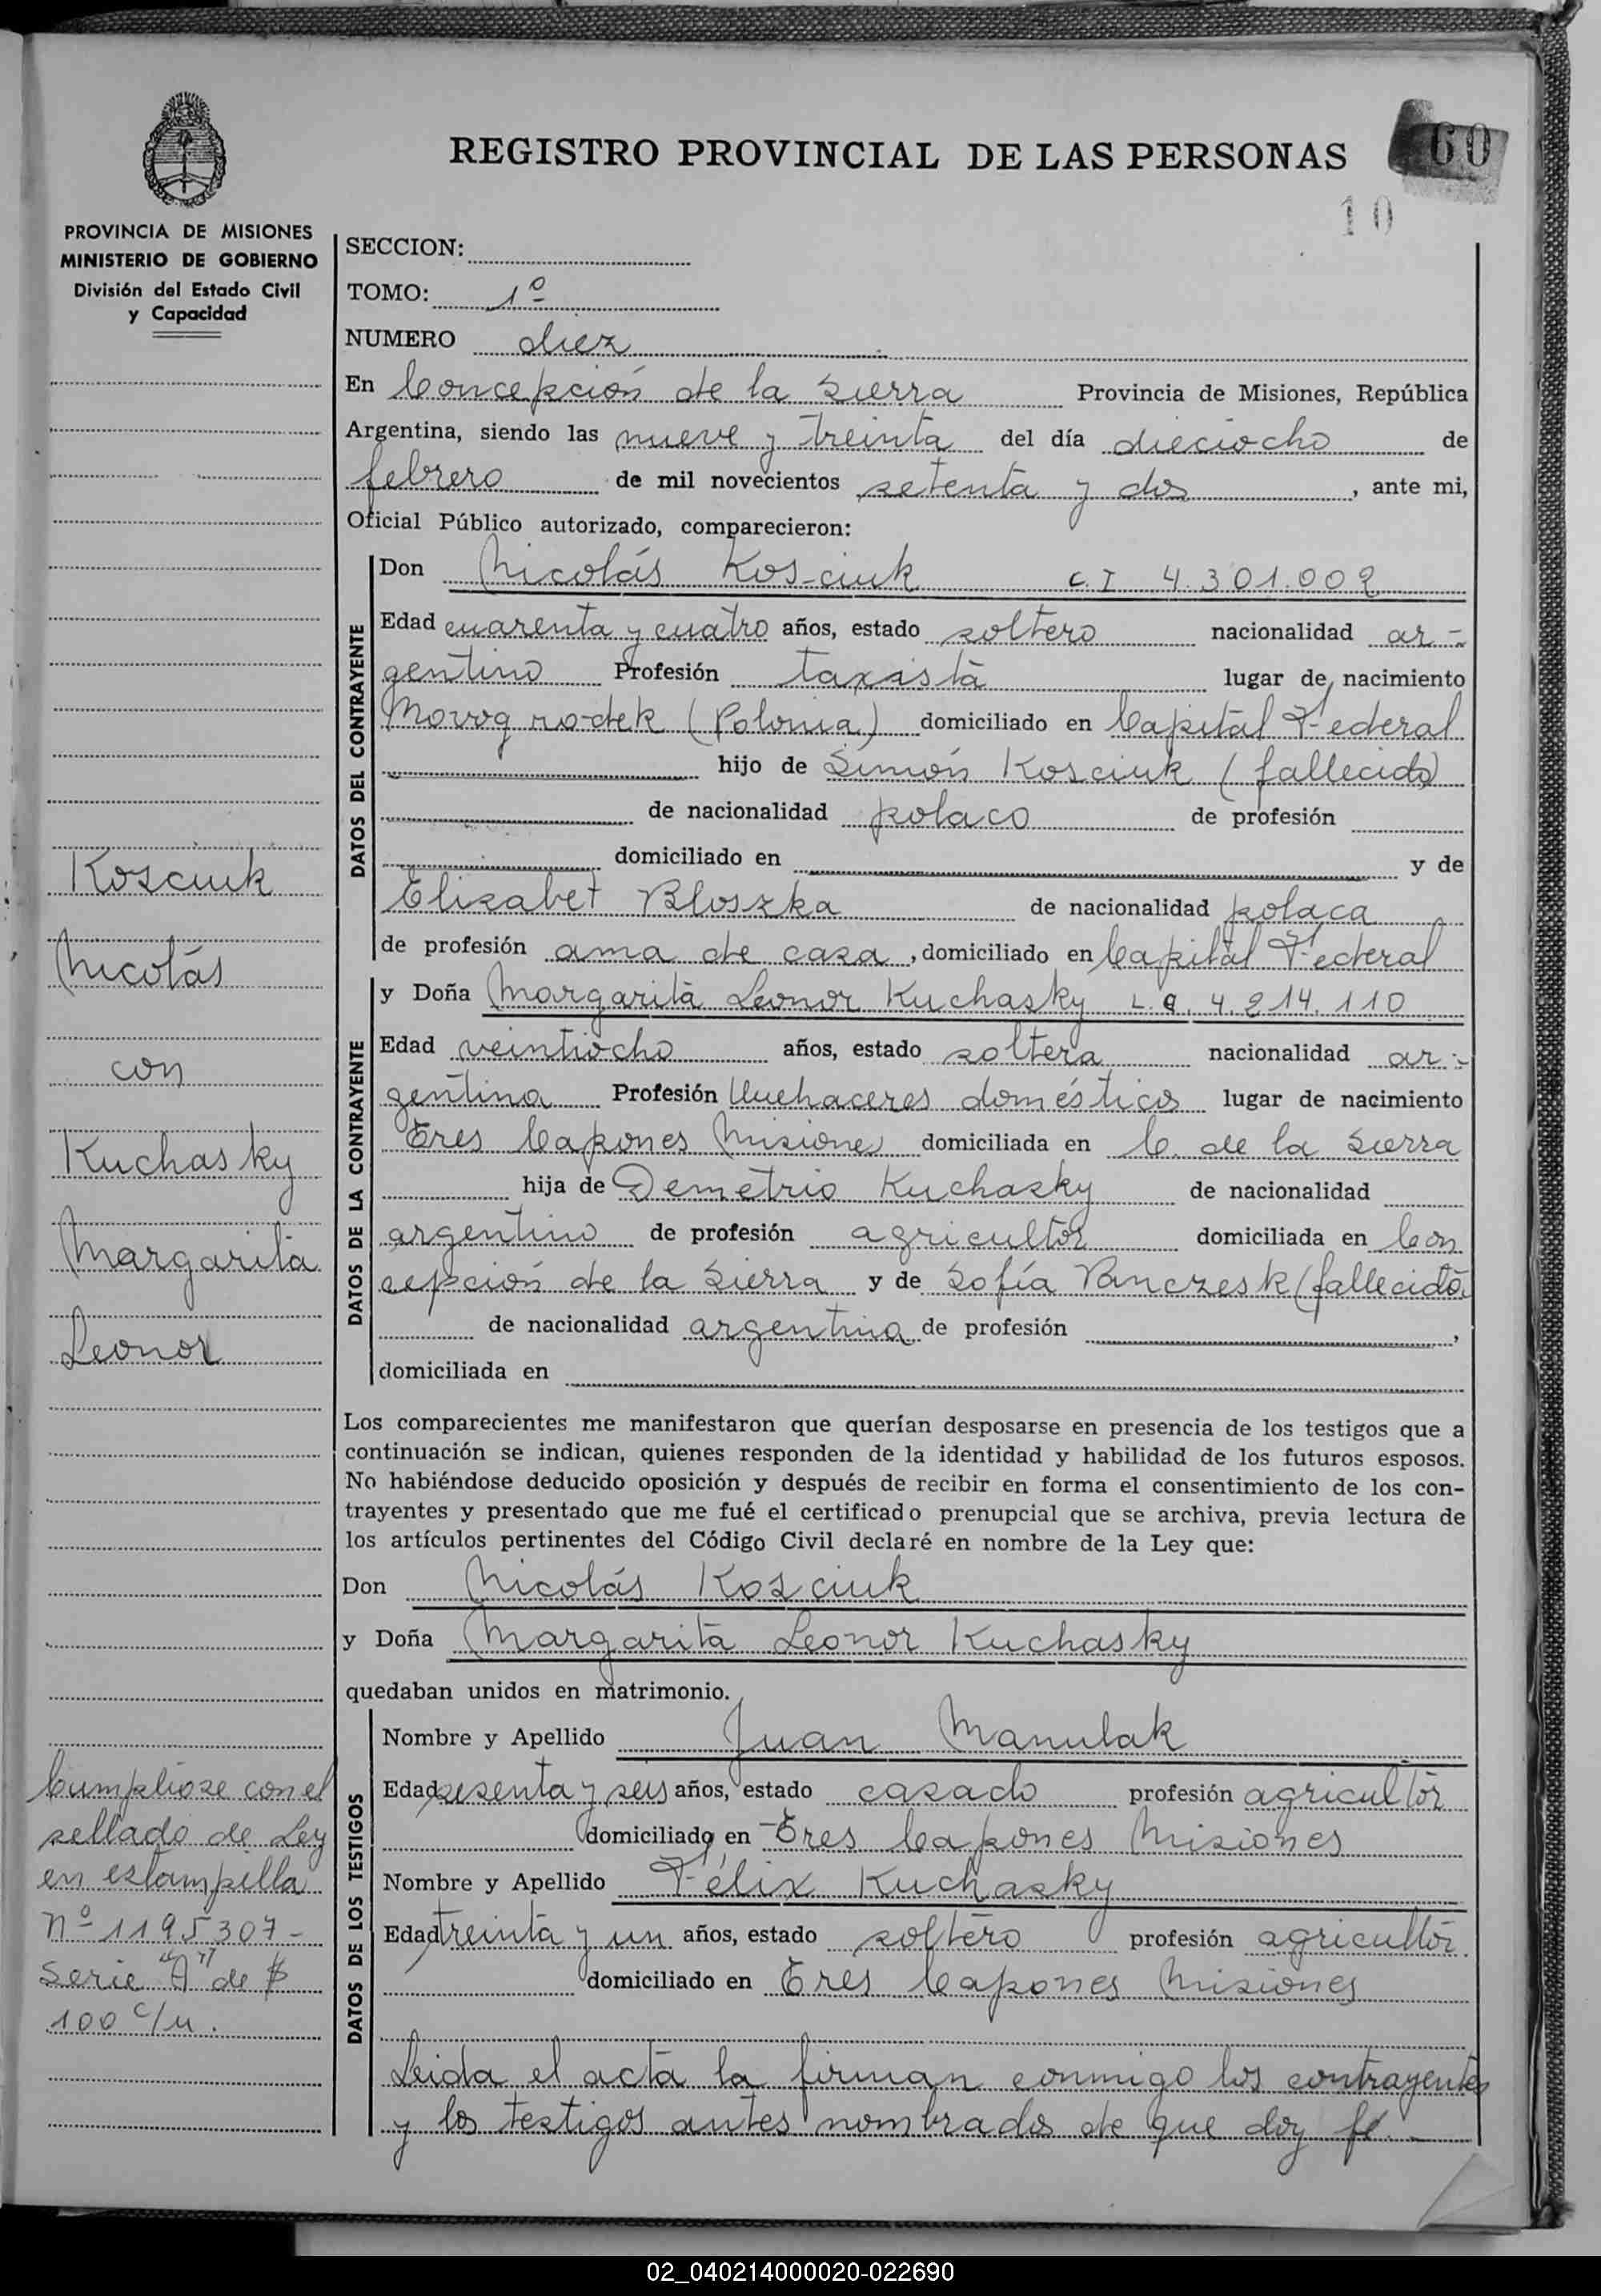 REGISTRO PROVINCIAL DE LAS PERSONAS
60
10
PROVINCIA DE MISIONES
MINISTERIO DE GOBIERNO
División del Estado Civil
y Capacidad
SECCION:
TOMO: 1º
NUMERO diez
En Concepción de la Sierra Provincia de Misiones, República
Argentina, siendo las nueve y treinta del día dieciocho de
febrero de mil novecientos setenta y dos, ante mi,
Oficial Público autorizado, comparecieron:
DATOS DEL CONTRAYENTE
Don Nicolás Kos-ciuk C.I 4.301.002
Edad cuarenta y cuatro años, estado soltero nacionalidad ar-
gentino Profesión taxista lugar de nacimiento
Movog ro-dek (Polonia) domiciliado en Capital Federal
hijo de Simón Kosciuk (fallecido)
de nacionalidad polaco de profesión
domiciliado en y de
Elizabet Bloszka de nacionalidad polaca
de profesión ama de casa, domiciliado en Capital Federal
DATOS DE LA CONTRAYENTE
y Doña Margarita Leonor Kuchasky L.C. 4.214.110
Edad veintiocho años, estado soltera nacionalidad ar-
gentina Profesión Quehaceres domésticos lugar de nacimiento
Tres Capones Misiones domiciliada en C. de la Sierra
hija de Demetrio Kuchasky de nacionalidad
argentino de profesión agricultor domiciliada en Con
cepción de la Sierra y de Sofía Panczesk (fallecida)
de nacionalidad argentina de profesión ,
domiciliada en
Los comparecientes me manifestaron que querían desposarse en presencia de los testigos que a
continuación se indican, quienes responden de la identidad y habilidad de los futuros esposos.
No habiéndose deducido oposición y después de recibir en forma el consentimiento de los con-
trayentes y presentado que me fué el certificado prenupcial que se archiva, previa lectura de
los artículos pertinentes del Código Civil declaré en nombre de la Ley que:
Don Nicolás Kosciuk
y Doña Margarita Leonor Kuchasky
quedaban unidos en matrimonio.
DATOS DE LOS TESTIGOS
Nombre y Apellido Juan Manulak
Edad sesenta y seis años, estado casado profesión agricultor
domiciliado en Tres Capones Misiones
Nombre y Apellido Félix Kuchasky
Edad treinta y un años, estado soltero profesión agricultor
domiciliado en Tres Capones Misiones
Leida el acta la firman conmigo los contrayentes
y los testigos antes nombrados de que doy fé.-
Kosciuk
Nicolás
con
Kuchasky
Margarita
Leonor
Cumplióse con el
sellado de Ley
en estampilla
nº 1195307-
Serie "A" de $
100 c/u.
02_040214000020-022690